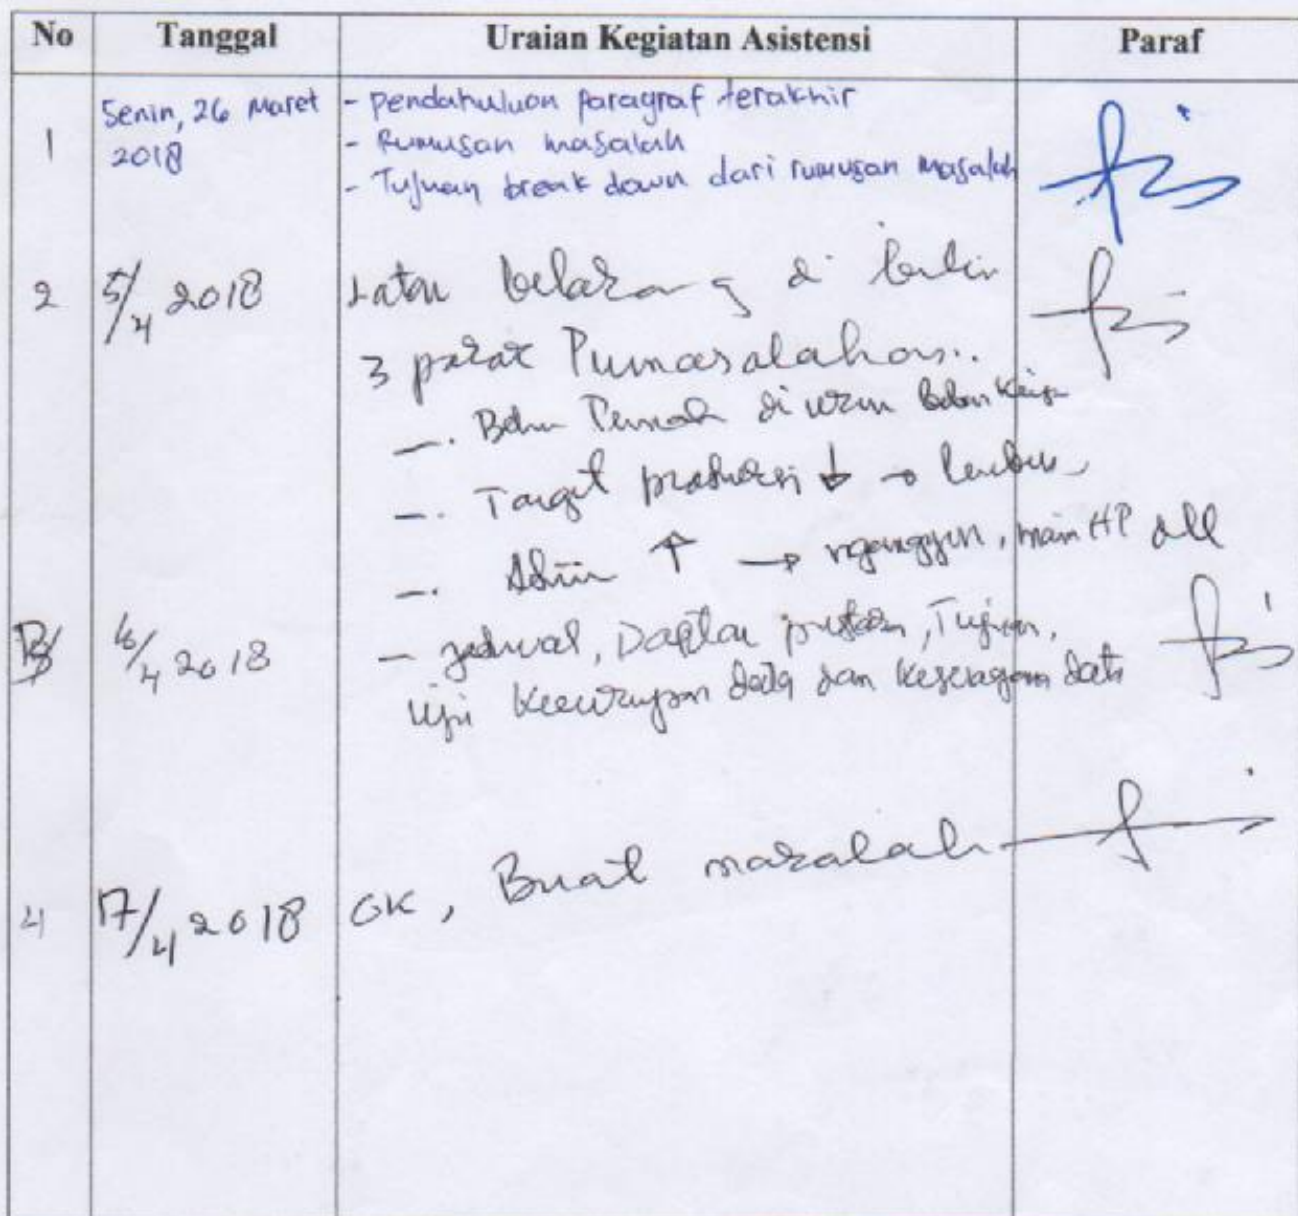 No Tanggal Uraian Kegiatan Asistensi Paraf
1 Senin, 26 Maret 2018
- Pendahuluan paragraf terakhir
- Rumusan masalah
- Tujuan break down dari rumusan masalah
2 5/4 2018
Latar belakang di
3 Permasalahan..
-. Belum Pernah di ukur beban kerja
-. Target produksi ↓ → lembur
-. ↑ → nganggur, main HP dll
3 6/4 2018
- jadwal, Daftar pustaka, Tujuan,
uji kecukupan data dan keseragaman data
4 17/4 2018 OK, Buat